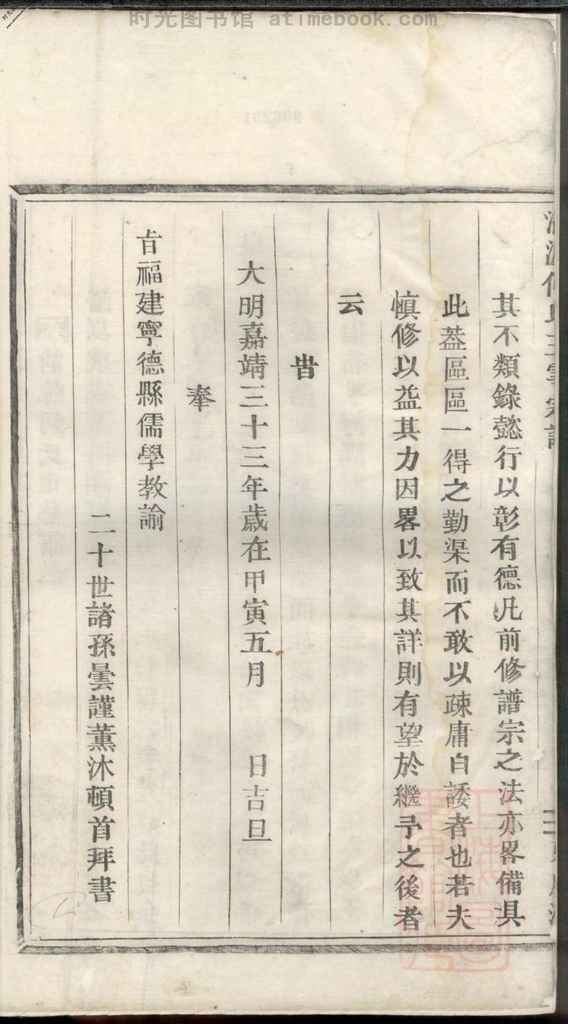 时光图书馆 atimebook.com
其不類錄懿行以彰有德凡前修譜宗之法亦畧備具
此葢區區一得之勤渠而不敢以疎庸自諉者也若夫
慎修以益其力因畧以致其詳則有望於繼予之後者
云
旹
大明嘉靖三十三年歲在甲寅五月 日吉旦
奉
㫖福建寧德縣儒學教諭
二十世諸孫曇謹薰沐頓首拜書